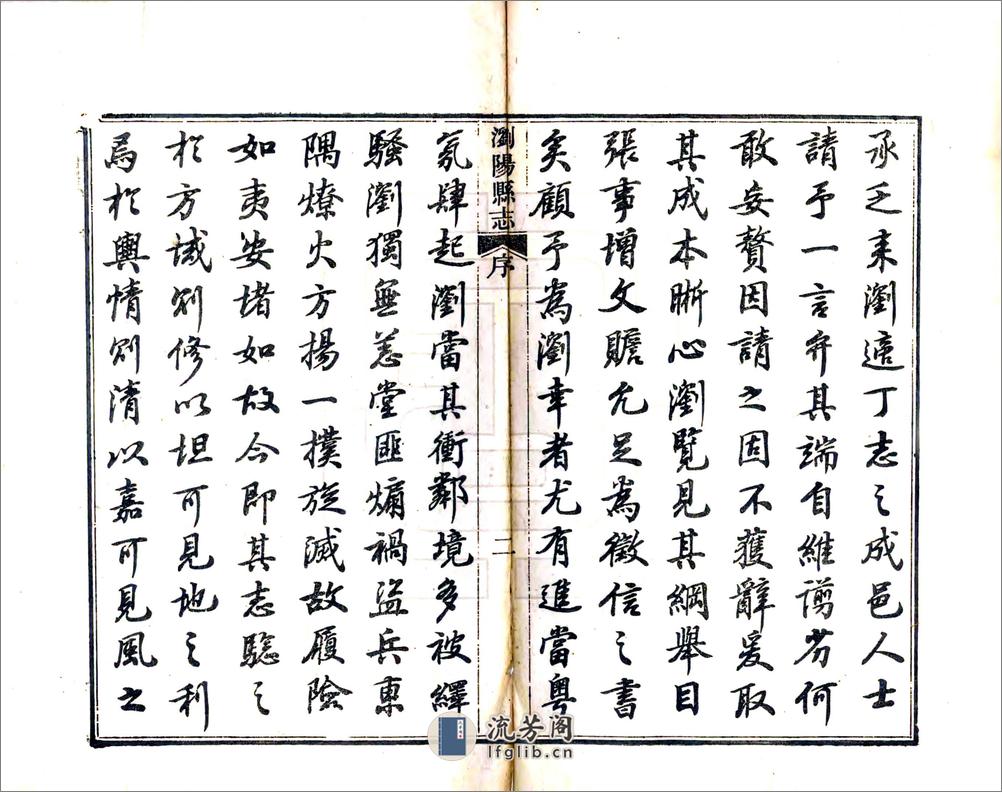 承乏来瀏適丁志之成邑人士
請予一言弁其端自維謭劣何
敢妄贅因請之固不獲辭爰取
其成本晰心瀏覽見其綱舉目
張事增文贍允足為徵信之書
矣顧予為瀏幸者尤有進當粵
瀏陽縣志 序 二
氛肆起瀏當其衝鄰境多被繹
騷瀏獨無恙堂匪煽禍盜兵東
隅燎火方揚一撲旋滅故履險
如夷安堵如故今即其志驗之
於方域則修以坦可見地之利
焉於輿情則清以嘉可見風之
流芳阁
lfglib.cn